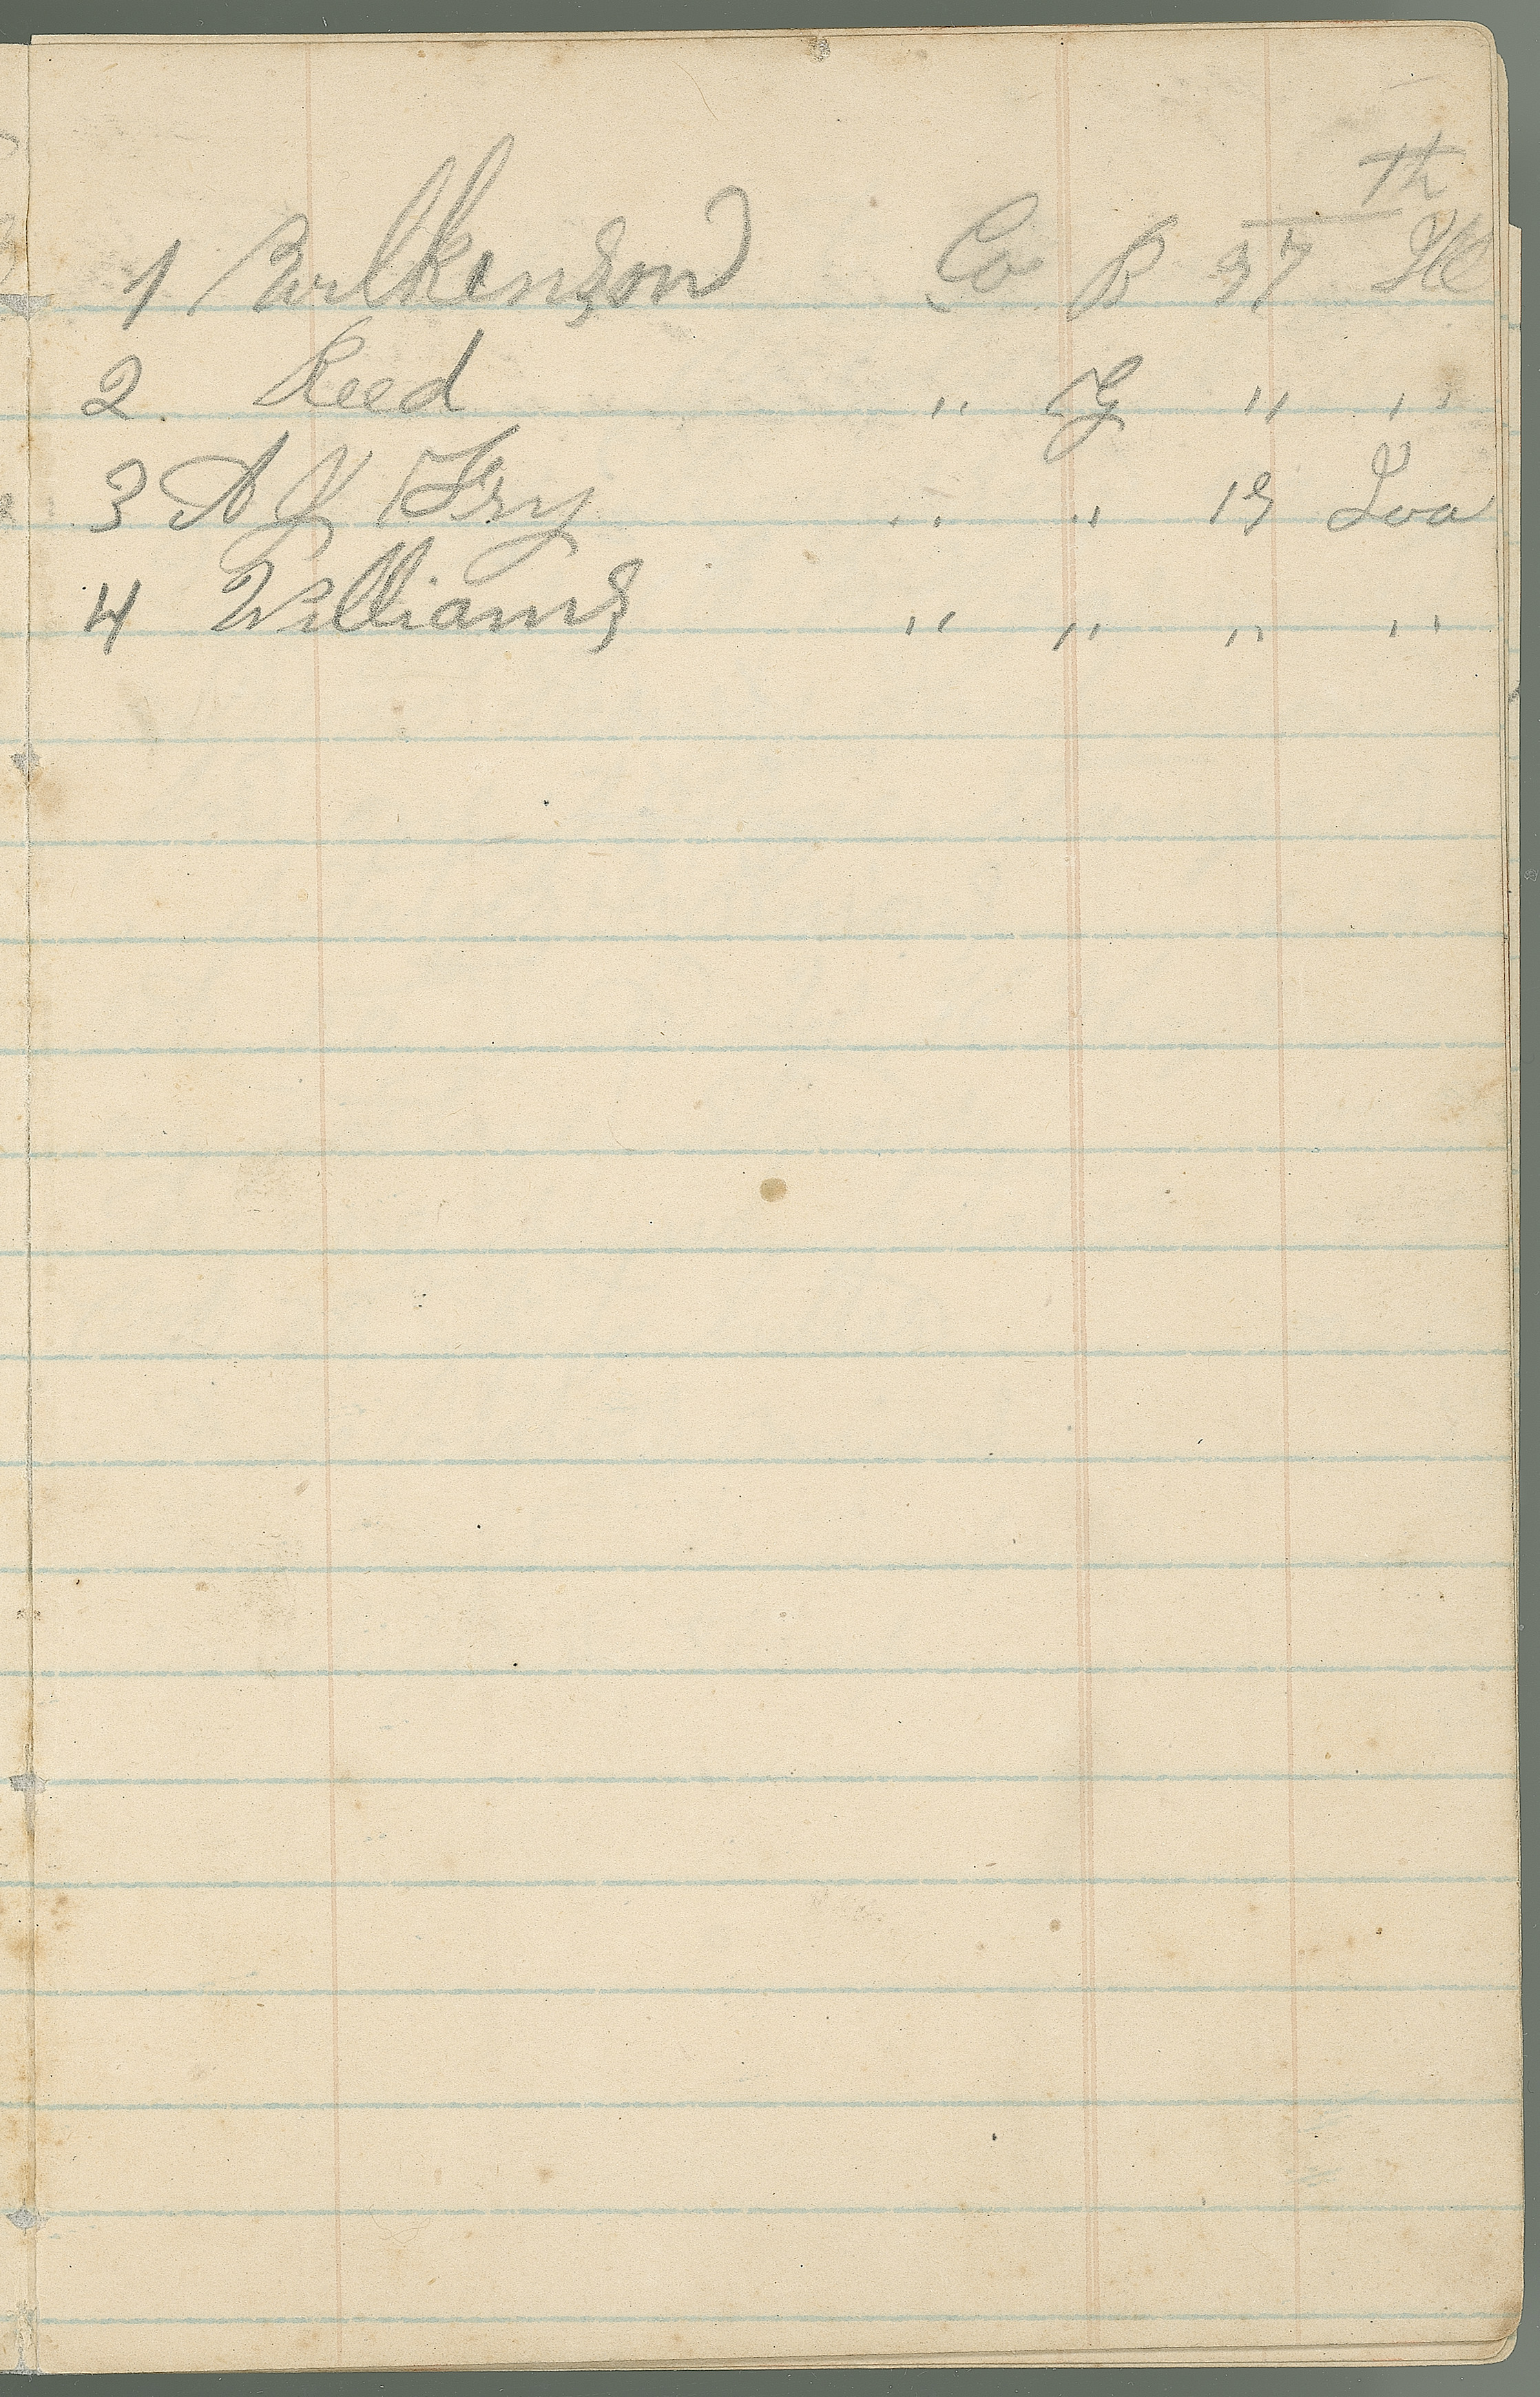 1 Wilkinson Co B 37th Ill
2 Reed " G " "
3 A J Fry " " 19 Ioa
4 Williams " " " "